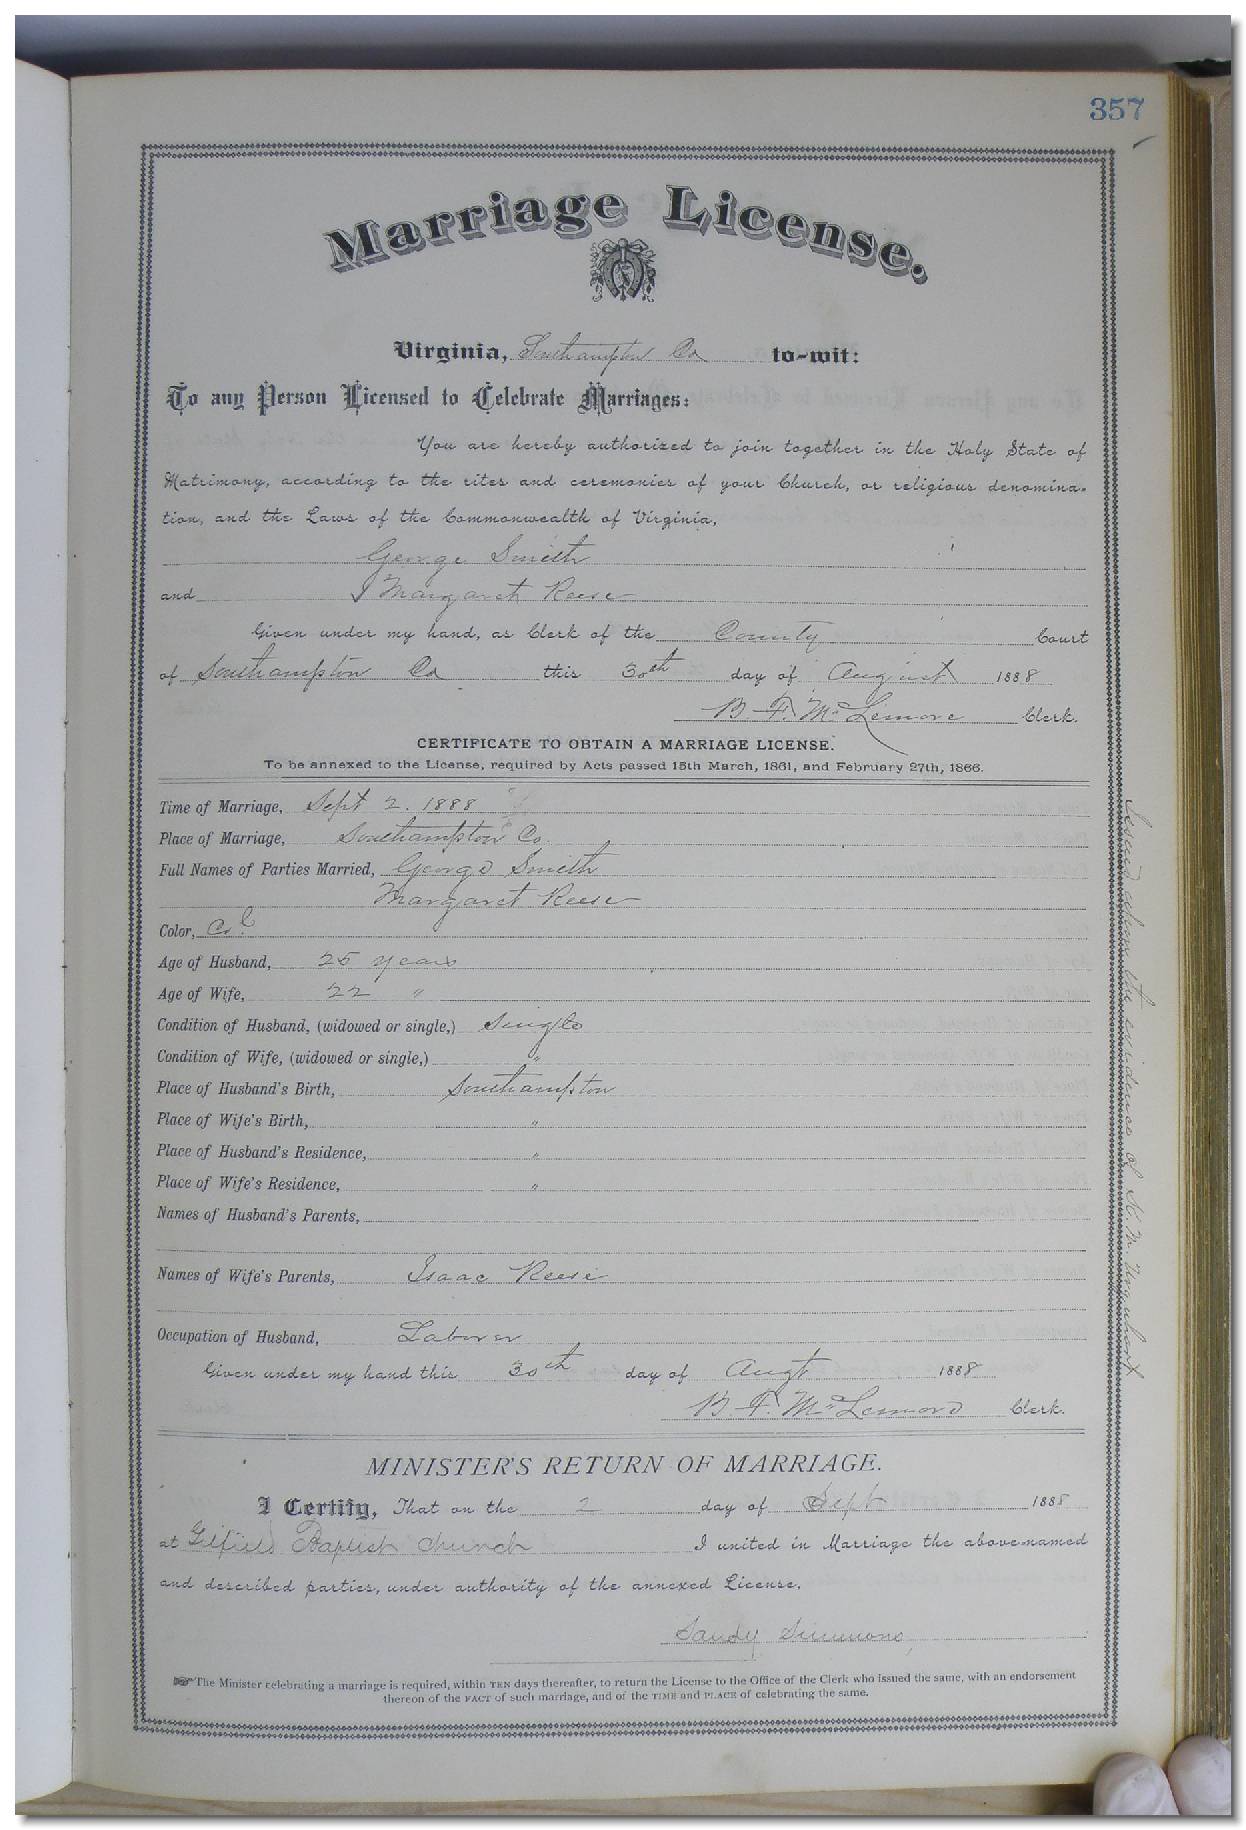 357
Marriage License.
Virginia, Southampton Co to-wit:
To any Person Licensed to Celebrate Marriages:
You are hereby authorized to join together in the Holy State of
Matrimony, according to the rites and ceremonies of your Church, or religious denomina-
tion, and the Laws of the Commonwealth of Virginia,
George Smith
and Margaret Reese
Given under my hand, as Clerk of the County Court
of Southampton Co this 30th day of August 1888
B. F. McLemore Clerk.
CERTIFICATE TO OBTAIN A MARRIAGE LICENSE.
To be annexed to the License, required by Acts passed 15th March, 1861, and February 27th, 1866.
Time of Marriage, Sept 2. 1888
Place of Marriage, Southampton Co.
Full Names of Parties Married, George Smith
Margaret Reese
Color, Col
Age of Husband, 25 years
Age of Wife, 22 "
Condition of Husband, (widowed or single,) Single
Condition of Wife, (widowed or single,) "
Place of Husband's Birth, Southampton
Place of Wife's Birth, "
Place of Husband's Residence, "
Place of Wife's Residence, "
Names of Husband's Parents,
Names of Wife's Parents, Isaac Reese
Occupation of Husband, Laborer
Given under my hand this 30th day of Augt 1888
B. F. McLemore Clerk.
MINISTER'S RETURN OF MARRIAGE.
I Certify, That on the 2 day of Sept 1888
at Gilfield Baptist Church I united in Marriage the above-named
and described parties, under authority of the annexed License.
Sandy Simmons
The Minister celebrating a marriage is required, within TEN days thereafter, to return the License to the Office of the Clerk who issued the same, with an endorsement
thereon of the FACT of such marriage, and of the TIME and PLACE of celebrating the same.
Issued upon the evidence of Urquhart